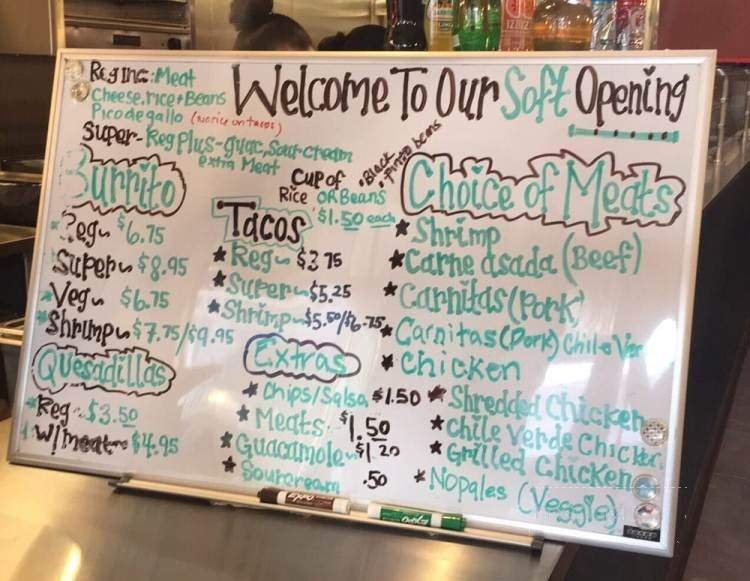 Welcome To Our Soft Opening
Reg Inc: Meat
Cheese, rice + Beans
Pico de gallo (no rice on tacos)
Super - Reg Plus - guac, Sour-cream
extra Meat
Burrito
Reg ~ $6.75
Super ~ $8.95
Veg ~ $6.75
Shrimp ~ $7.75/$9.95
Quesadillas
Reg ~ $3.50
W/meat ~ $4.95
Cup of • Black
• Pinto beans
Rice OR Beans
$1.50 each
Tacos
* Reg ~ $3.75
* Super ~ $5.25
* Shrimp ~ $5.50/$6.75
Extras
* Chips/Salsa $1.50
* Meats $1.50
* Guacamole ~ $1.20
* Sourcream .50
Choice of Meats
* Shrimp
* Carne asada (Beef)
* Carnitas (pork)
* Carnitas (pork) Chile Ver
* Chicken
* Shredded Chicken
* Chile Verde Chicken
* Grilled Chicken
* Nopales (Veggie)
EXPO
EXPO